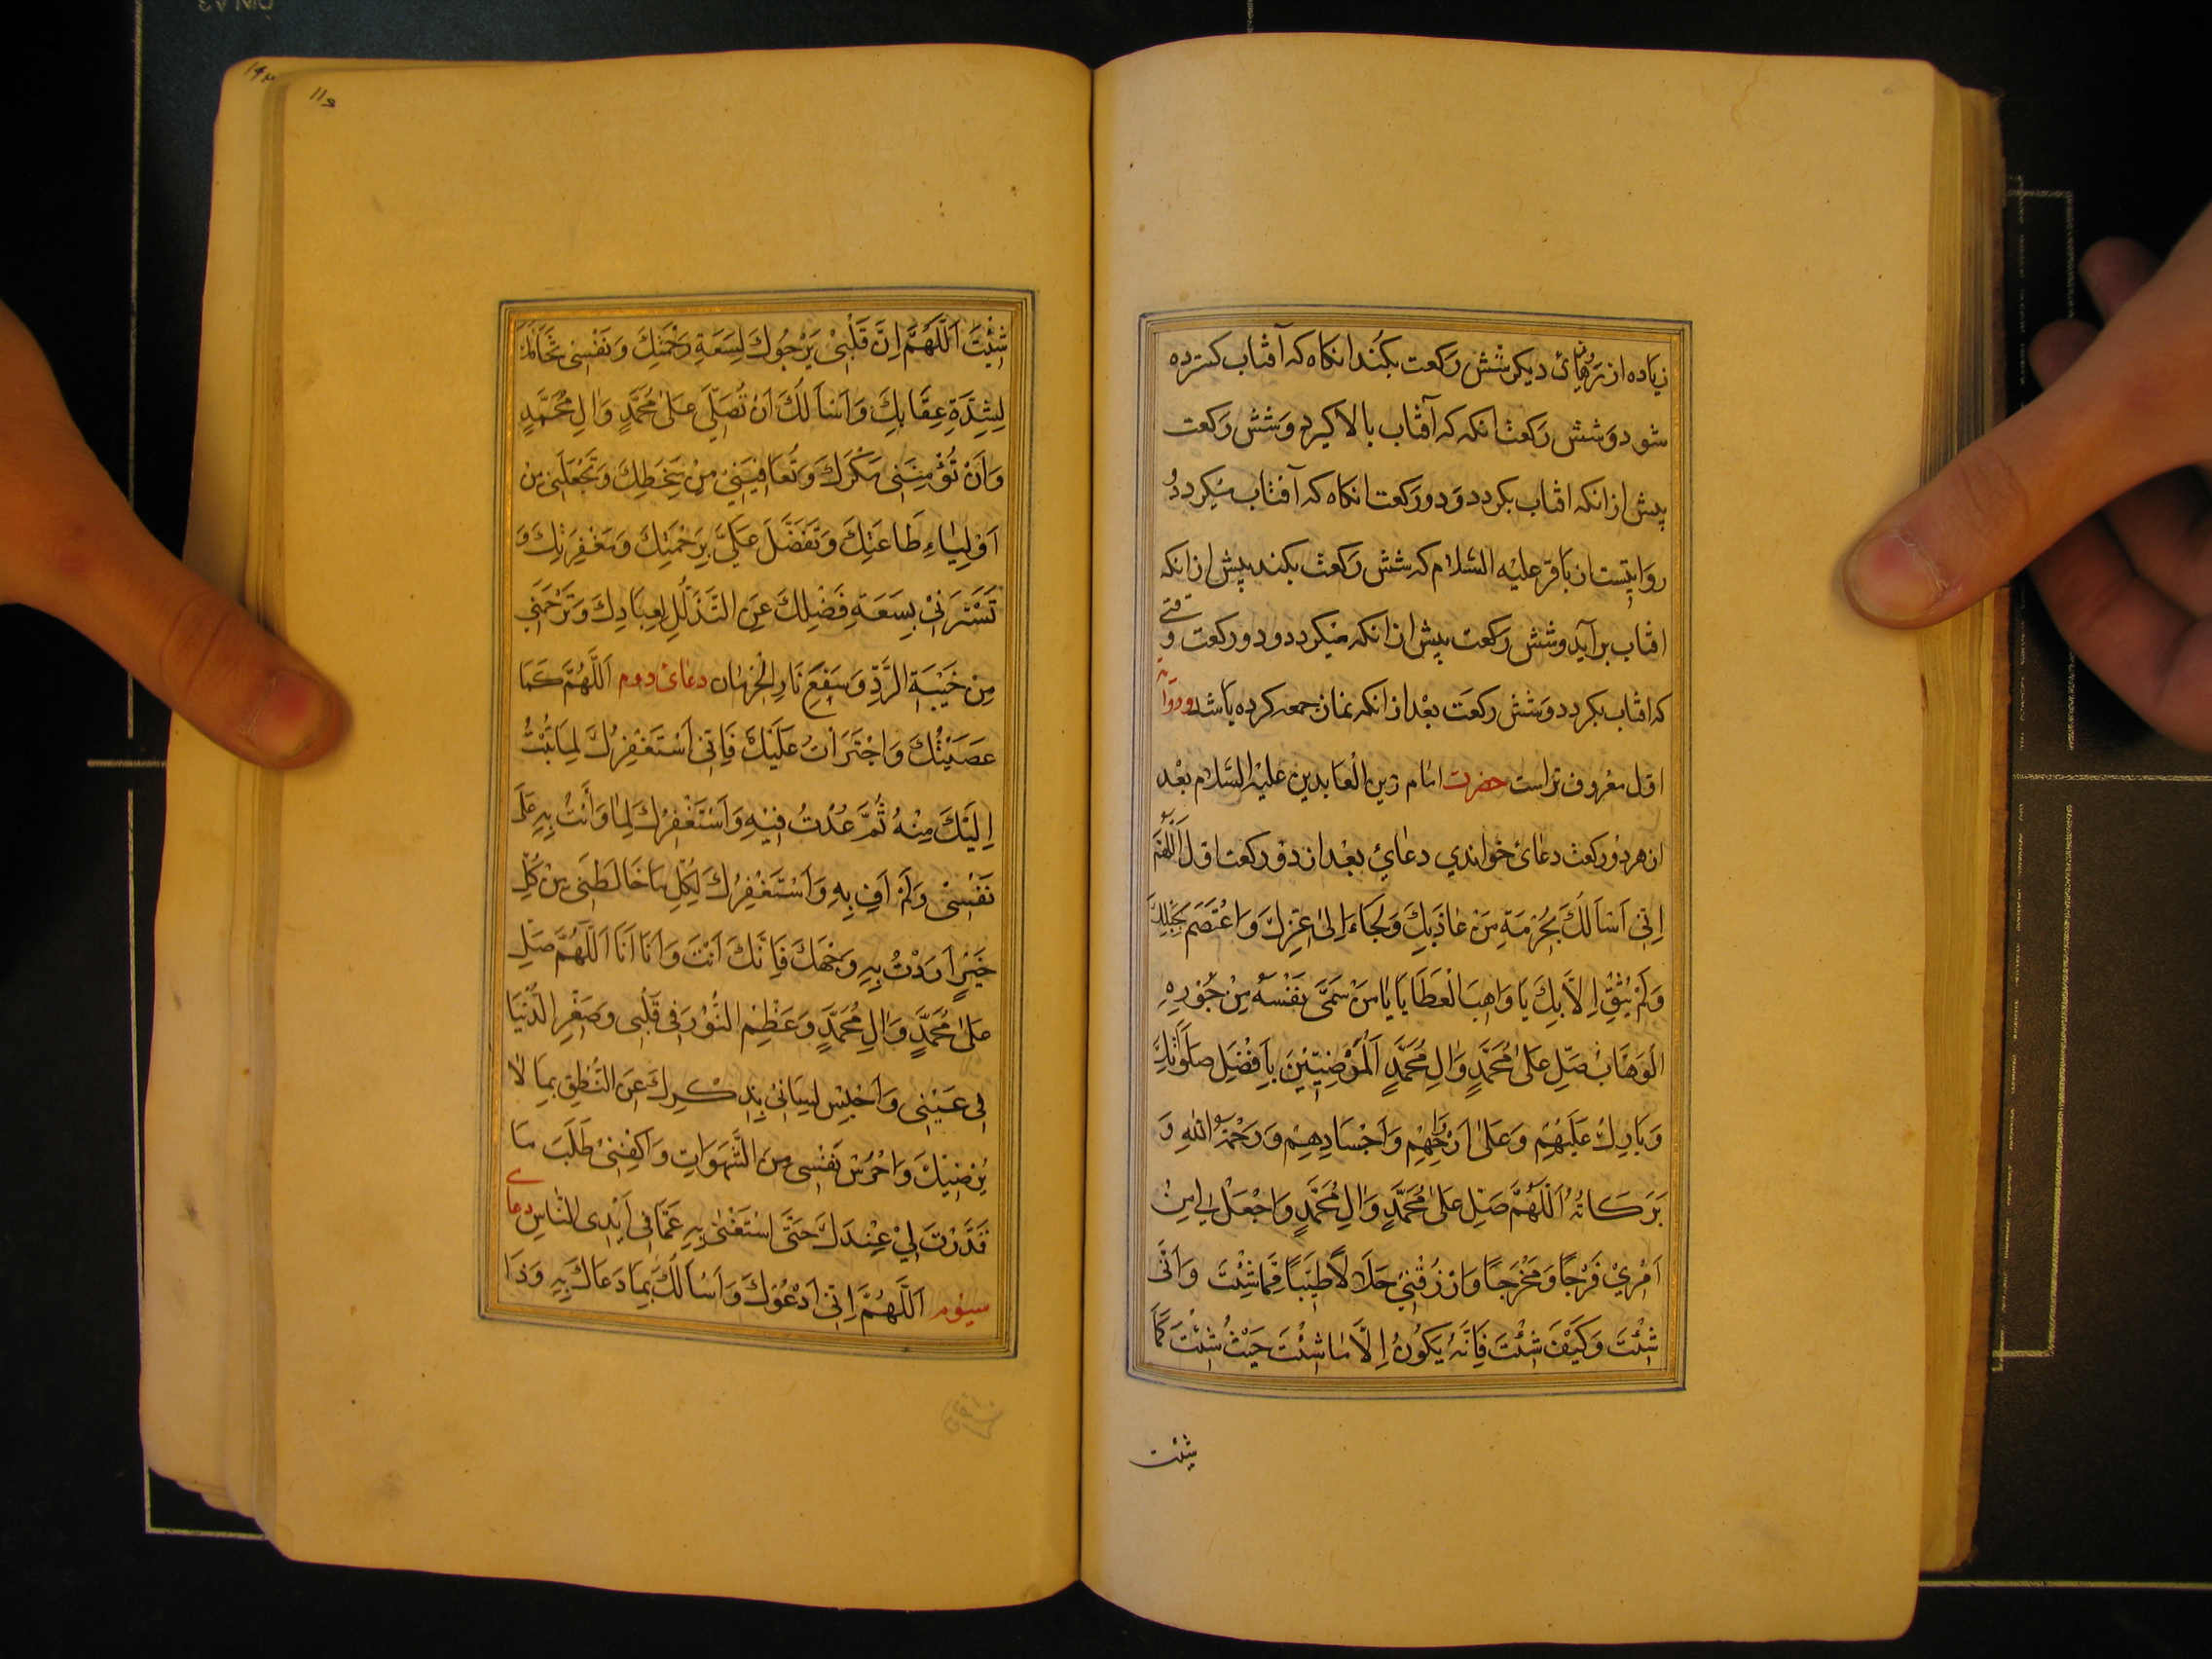 زیاده از روزهای دیکر شش رکعت بکند انکاه که آفتاب کسترده
شود و شش رکعت انکه که آفتاب بالا کیرد و شش رکعت
پیش از انکه افتاب بکردد و دو رکعت انکاه که آفتاب میکردد و
روایتست از باقر علیه السّلام که شش رکعت بکند پیش از انکه
افتاب برآید و شش رکعت پیش از انکه میکردد و دو رکعت وقتی
که افتاب بکردد و شش رکعت بعْد از انکه نماز جمعه کرده باشد و روایة
اوّل معروف تر است حضرت امام زین الْعابدین علیه السّلام بعْد
از هر دو رکعت دعائ خواندی دعائي بعْد از دوْ رکعت اوّل اَللّهُمَّ
اِنّی اَسْاَلُكَ بِحُرْمَةِ مَنْ عٰاذَ بِكَ وَلَجَاءَ اِلیٰ عِزِّكَ وَاعْتَصَمَ بِحَبْلِكَ
وَلَمْ یَثِقْ اِلاَّ بِكَ یَا وَاهِبَ الْعَطَایَا یٰا مَنْ سَمَّیٰ نَفْسَهُ مِنْ جُوْدِهِ
الْوَهَّابَ صَلِّ عَلیٰ مُحَمَّدٍ وَاٰلِ مُحَمَّدٍ اَلْمَرْضِیّیْنَ بِاَفْضَلِ صَلَوٰتِكَ
وَبَارِكْ عَلَیْهِمْ وَعَلیٰ اَرْوٰاحِهِمْ وَاَجْسَادِهِمْ وَرَحْمَةُ اللهِ وَ
بَرَكَاتُهُ اَللّٰهُمَّ صَلِّ عَلیٰ مُحَمَّدٍ وَاٰلِ مُحَمَّدٍ وَاجْعَلْ لِی مِنْ
اَمْرِيْ فَرَجًا وَمَخْرَجًا وَارْزُقْنِيْ حَلَالًا طَیِّبًا مِمَّا شِئْتَ وَاَنّٰی
شِئْتَ وَكَیْفَ شِئْتَ فَاِنَّهُ یَكُوْنُ اِلَّا مٰا شِئْتَ حَیْثُ شِئْتَ كَمَا
شِئْت
شِئْتَ اَللّٰهُمَّ اِنَّ قَلْبِیْ یَرْجُوكَ لِسَعَةِ رَحْمَتِكَ وَنَفْسِی تَخَافُكَ
لِشِدَّةِ عِقَابِكَ وَاَسْاَلُكَ اَنْ تُصَلِّیَ عَلیٰ مُحَمَّدٍ وَاٰلِ مُحَمَّدٍ
وَاَنْ تُؤْمِنَنِی مَكْرَكَ وَتُعَافِیَنِیْ مِنْ سَخَطِكَ وَتَجْعَلَنِی مِنْ
اَوْلِیٰاءِ طَاعَتِكَ وَتَفَضَّلَ عَلَیَّ بِرَحْمَتِكَ وَمَغْفِرَتِكَ وَ
تَسْتُرَنِیْ بِسَعَةِ فَضْلِكَ عَنِ التَّذَلُّلِ لِعِبَادِكَ وَتَرْحَمَنِی
مِنْ خَیْبَةِ الرَّدِّ وَسَفْعِ نَارِ الْحِرْمٰان دعائ دوم اَللّٰهُمَّ كَمَا
عَصَیْتُكَ وَاجْتَرَأْتُ عَلَیْكَ فَاِنّی اَسْتَغْفِرُكَ لِمَا تُبْتُ
اِلَیْكَ مِنْهُ ثُمَّ عُدْتُ فِیْهِ وَاَسْتَغْفِرُكَ لِمٰا وَأَیْتُ بِهِ عَلیٰ
نَفْسِیْ وَلَمْ اَفِ بِهِ وَاَسْتَغْفِرُكَ لِكُلِّ مٰا خَالَطَنِی مِنْ كُلِّ
خَیْرٍ اَرَدْتُ بِهِ وَجْهَكَ فَاِنَّكَ اَنْتَ وَاَنَا اَنَا اَللّٰهُمَّ صَلِّ
عَلیٰ مُحَمَّدٍ وَاٰلِ مُحَمَّدٍ وَعَظِّمْ النُّوْرَ فِی قَلْبِی وَصَغِّرِ الدُّنْیَا
فِی عَیْنِی وَاَحْبِسْ لِسٰانِیْ بِذِكْرِكَ عَنِ النُّطْقِ بِمَا لَا
یُرْضِیْكَ وَاحْرُسْ نَفْسِی مِنَ الشَّهَوَاتِ وَاكْفِنِیْ طَلَبَ مَا
قَدَّرْتَ لِيْ عِنْدَكَ حَتَّی اَسْتَغْنِیَ بِهِ عَمَّا فِی اَیْدِی النّٰاسِ دعای
سیوم اَللّٰهُمَّ اِنّی اَدْعُوْكَ وَاَسْاَلُكَ بِمَا دَعَاكَ بِهِ وَذَا